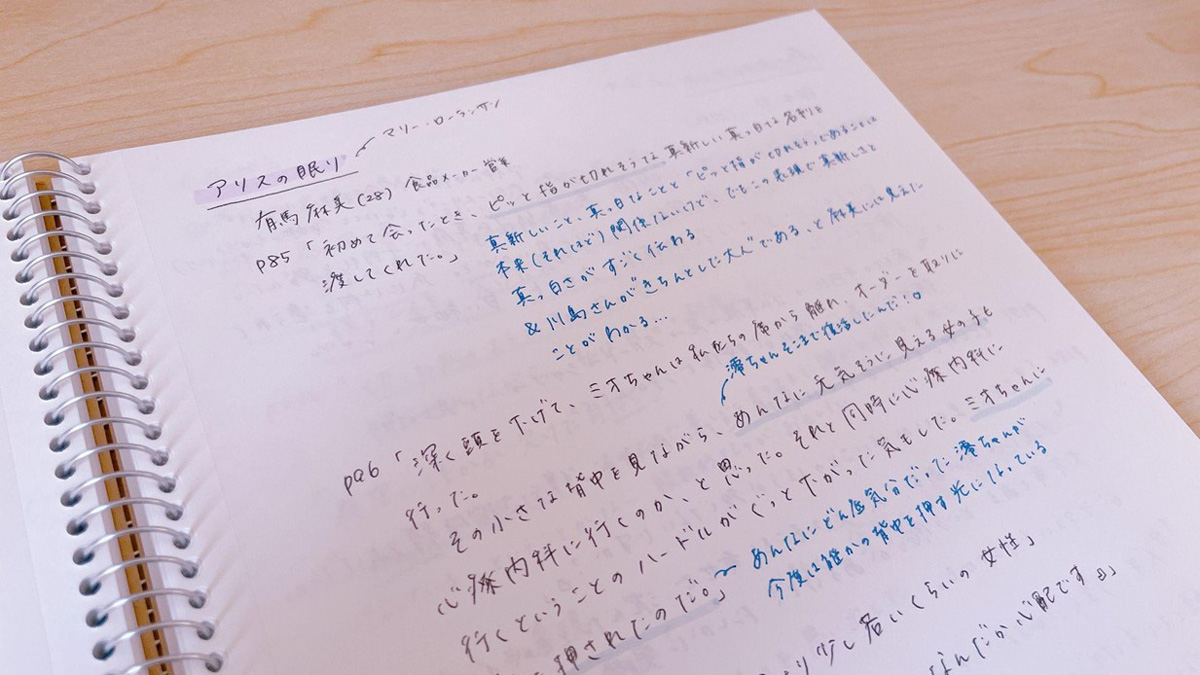 マリー・ローランサン
アリスの眠り
有馬麻美(28) 食品メーカー営業
p85「初めて会ったとき、ピッと指が切れそうな真新しい真っ白な名刺を
渡してくれた。」
真新しいこと、真っ白なことと「ピッと指が切れそう」であることは
本来(それほど)関係ないけど、でもこの表現で真新しさと
真っ白さがすごく伝わる
&川島さんがきちんとした大人である、と麻美には見えた
ことがわかる…
p96「深く頭を下げて、ミオちゃんは私たちの席から離れ、オーダーを取りに
行った。
澪ちゃんそこまで復活したんだ!
その小さな背中を見ながら、あんなに元気そうに見える女の子も
心療内科に行くのか、と思った。それと同時に心療内科に
行くということのハードルがぐっと下がった気もした。ミオちゃんに
押されたのだ。」
あんなにどん底気分だった澪ちゃんが
今度は誰かの背中を押す光になっている
少し若いくらいの女性」
なんだか心配です」